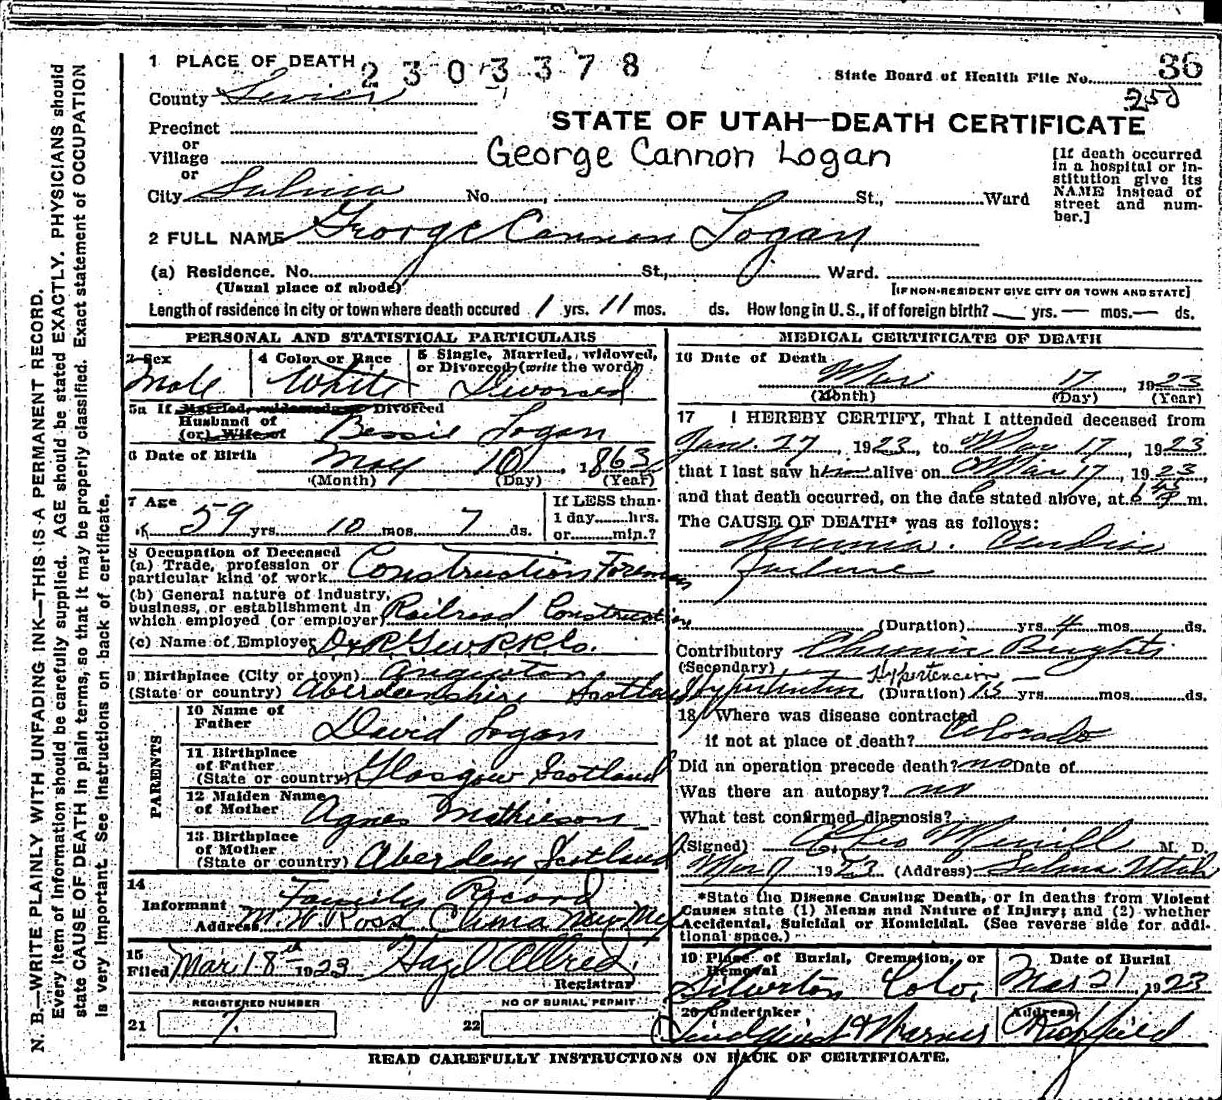 1 PLACE OF DEATH 2303378
State Board of Health File No. 36
250
County Sevier
STATE OF UTAH—DEATH CERTIFICATE
Precinct
or
Village
George Cannon Logan
or
City Salina No. St., Ward
[If death occurred in a hospital or in-
stitution give its
NAME instead of
street and num-
ber.]
2 FULL NAME George Cannon Logan
(a) Residence. No. St., Ward.
(Usual place of abode)
[IF NON-RESIDENT GIVE CITY OR TOWN AND STATE]
Length of residence in city or town where death occured 1 yrs. 11 mos. ds. How long in U. S., if of foreign birth? — yrs. — mos. — ds.
PERSONAL AND STATISTICAL PARTICULARS
3 Sex
Male
4 Color or Race
White
5 Single, Married, widowed,
or Divorced (write the word)
Divorced
5a If Married, widowed or Divorced
Husband of
(or) Wife of
Bessie Logan
6 Date of Birth May 10 1863
(Month) (Day) (Year)
7 Age
59 yrs. 10 mos. 7 ds.
If LESS than
1 day hrs.
or min.?
8 Occupation of Deceased
(a) Trade, profession or
particular kind of work Construction Foreman
(b) General nature of Industry,
business, or establishment in
which employed (or employer) Railroad Construction
(c) Name of Employer D&RGWRR Co.
9 Birthplace (City or town)
(State or country) Aberdeenshire Scotland
PARENTS
10 Name of
Father
David Logan
11 Birthplace
of Father
(State or country) Glasgow Scotland
12 Maiden Name
of Mother Agnes Mathieson
13 Birthplace
of Mother
(State or country) Aberdeen Scotland
14
Informant Family Record
Address M. W. Ross New Mex
15
Filed Mar 18th 1923 Hazel Allred
Registrar
REGISTERED NUMBER
21 7
NO OF BURIAL PERMIT
22
MEDICAL CERTIFICATE OF DEATH
16 Date of Death
Mar 17, 1923
(Month) (Day) (Year)
17 I HEREBY CERTIFY, That I attended deceased from
Jan. 27, 1923, to Mar 17, 1923
that I last saw him alive on Mar 17, 1923,
and that death occurred, on the date stated above, at m.
The CAUSE OF DEATH* was as follows:
Uremia. Cardiac
failure
(Duration) yrs. 4 mos. ds.
Contributory Chronic Brights
(Secondary) Hypertension
Hypertention (Duration) yrs. mos. ds.
18 Where was disease contracted
if not at place of death? Colorado
Did an operation precede death? no Date of
Was there an autopsy? no
What test confirmed diagnosis?
(Signed) Leo Merrill M. D.
Mar 1923 (Address) Salina Utah
*State the Disease Causing Death, or in deaths from Violent
Causes state (1) Means and Nature of Injury; and (2) whether
Accidental, Suicidal or Homicidal. (See reverse side for addi-
tional space.)
19 Place of Burial, Cremation, or
Removal
Silverton Colo.
Date of Burial
Mar 21, 1923
20 Undertaker
Address
Richfield
READ CAREFULLY INSTRUCTIONS ON BACK OF CERTIFICATE.
N. B.—WRITE PLAINLY WITH UNFADING INK—THIS IS A PERMANENT RECORD.
Every item of information should be carefully supplied. AGE should be stated EXACTLY. PHYSICIANS should
state CAUSE OF DEATH in plain terms, so that it may be properly classified. Exact statement of OCCUPATION
is very important. See Instructions on back of certificate.